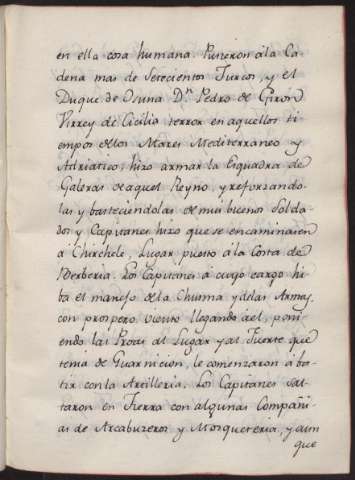 en ella cosa humana. Pusieron á la Ca-
dena mas de Setecientos Turcos, y el
Duque de Osuna Dn Pedro de Giron
Virrey de Cicilia terror en aquellos ti-
empos de los Mares Mediterraneo y
Adriatico, hizo armar la Esquadra de
Galeras de aquel Reyno, y reforzando-
las y basteciendolas de mui buenos Solda-
dos y Capitanes hizo que se encaminasen
á Chircheli, Lugar puesto á la Costa de
Berberia. Los Capitanes á cuyo cargo hi-
ba el manejo de la Chusma y de las Armas,
con prospero viento llegando a el, poni-
endo las Proas al Lugar y al Fuerte que
tenia de Guarnicion, le comenzaron á ba-
tir con la Artilleria. Los Capitanes Sal-
taron en Tierra con algunas Compañi-
as de Arcabuzeros y Mosqueteria, y aun
que